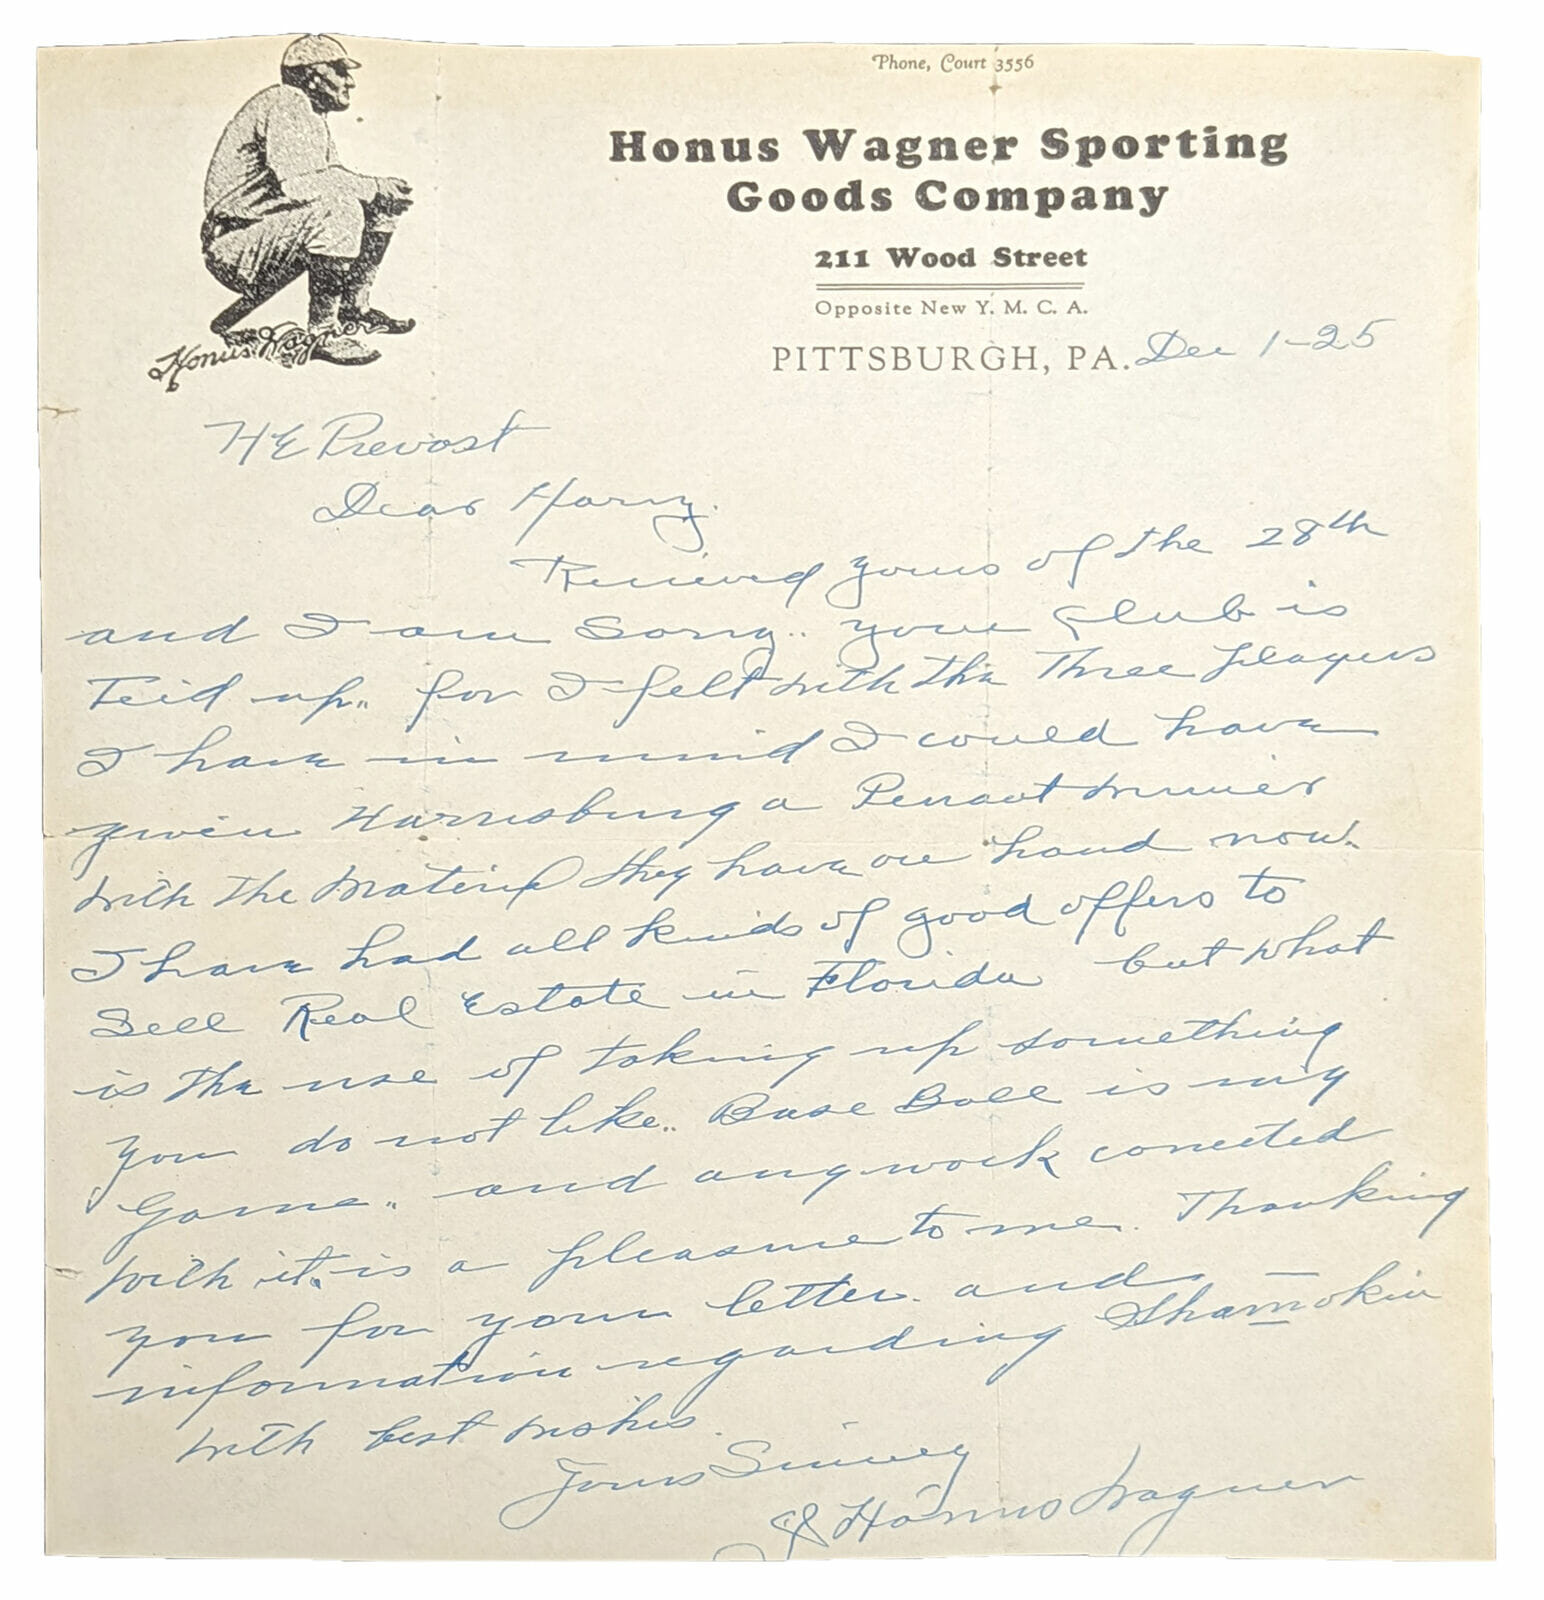 Phone, Court 3556
Honus Wagner Sporting
Goods Company
211 Wood Street
Opposite New Y. M. C. A.
PITTSBURGH, PA. Dec 1-25
Honus Wagner
H E Prevost
Dear Harry.
Recieved yours of the 28th
and I am Sorry.. your Club is
Teid up.. for I felt with the Three players
I have in mind I could have
given Harrisburg a Penant winner
with the Material they have on hand now.
I have had all kinds of good offers to
Sell Real Estate in Florida but what
is the use of taking up something
you do not like.. Base Ball is my
Game.. and any work conected
with it. is a pleasure to me. Thanking
you for your letter. and
information regarding Shamokin
with best wishes.
Yours Sincerely
J Honus Wagner